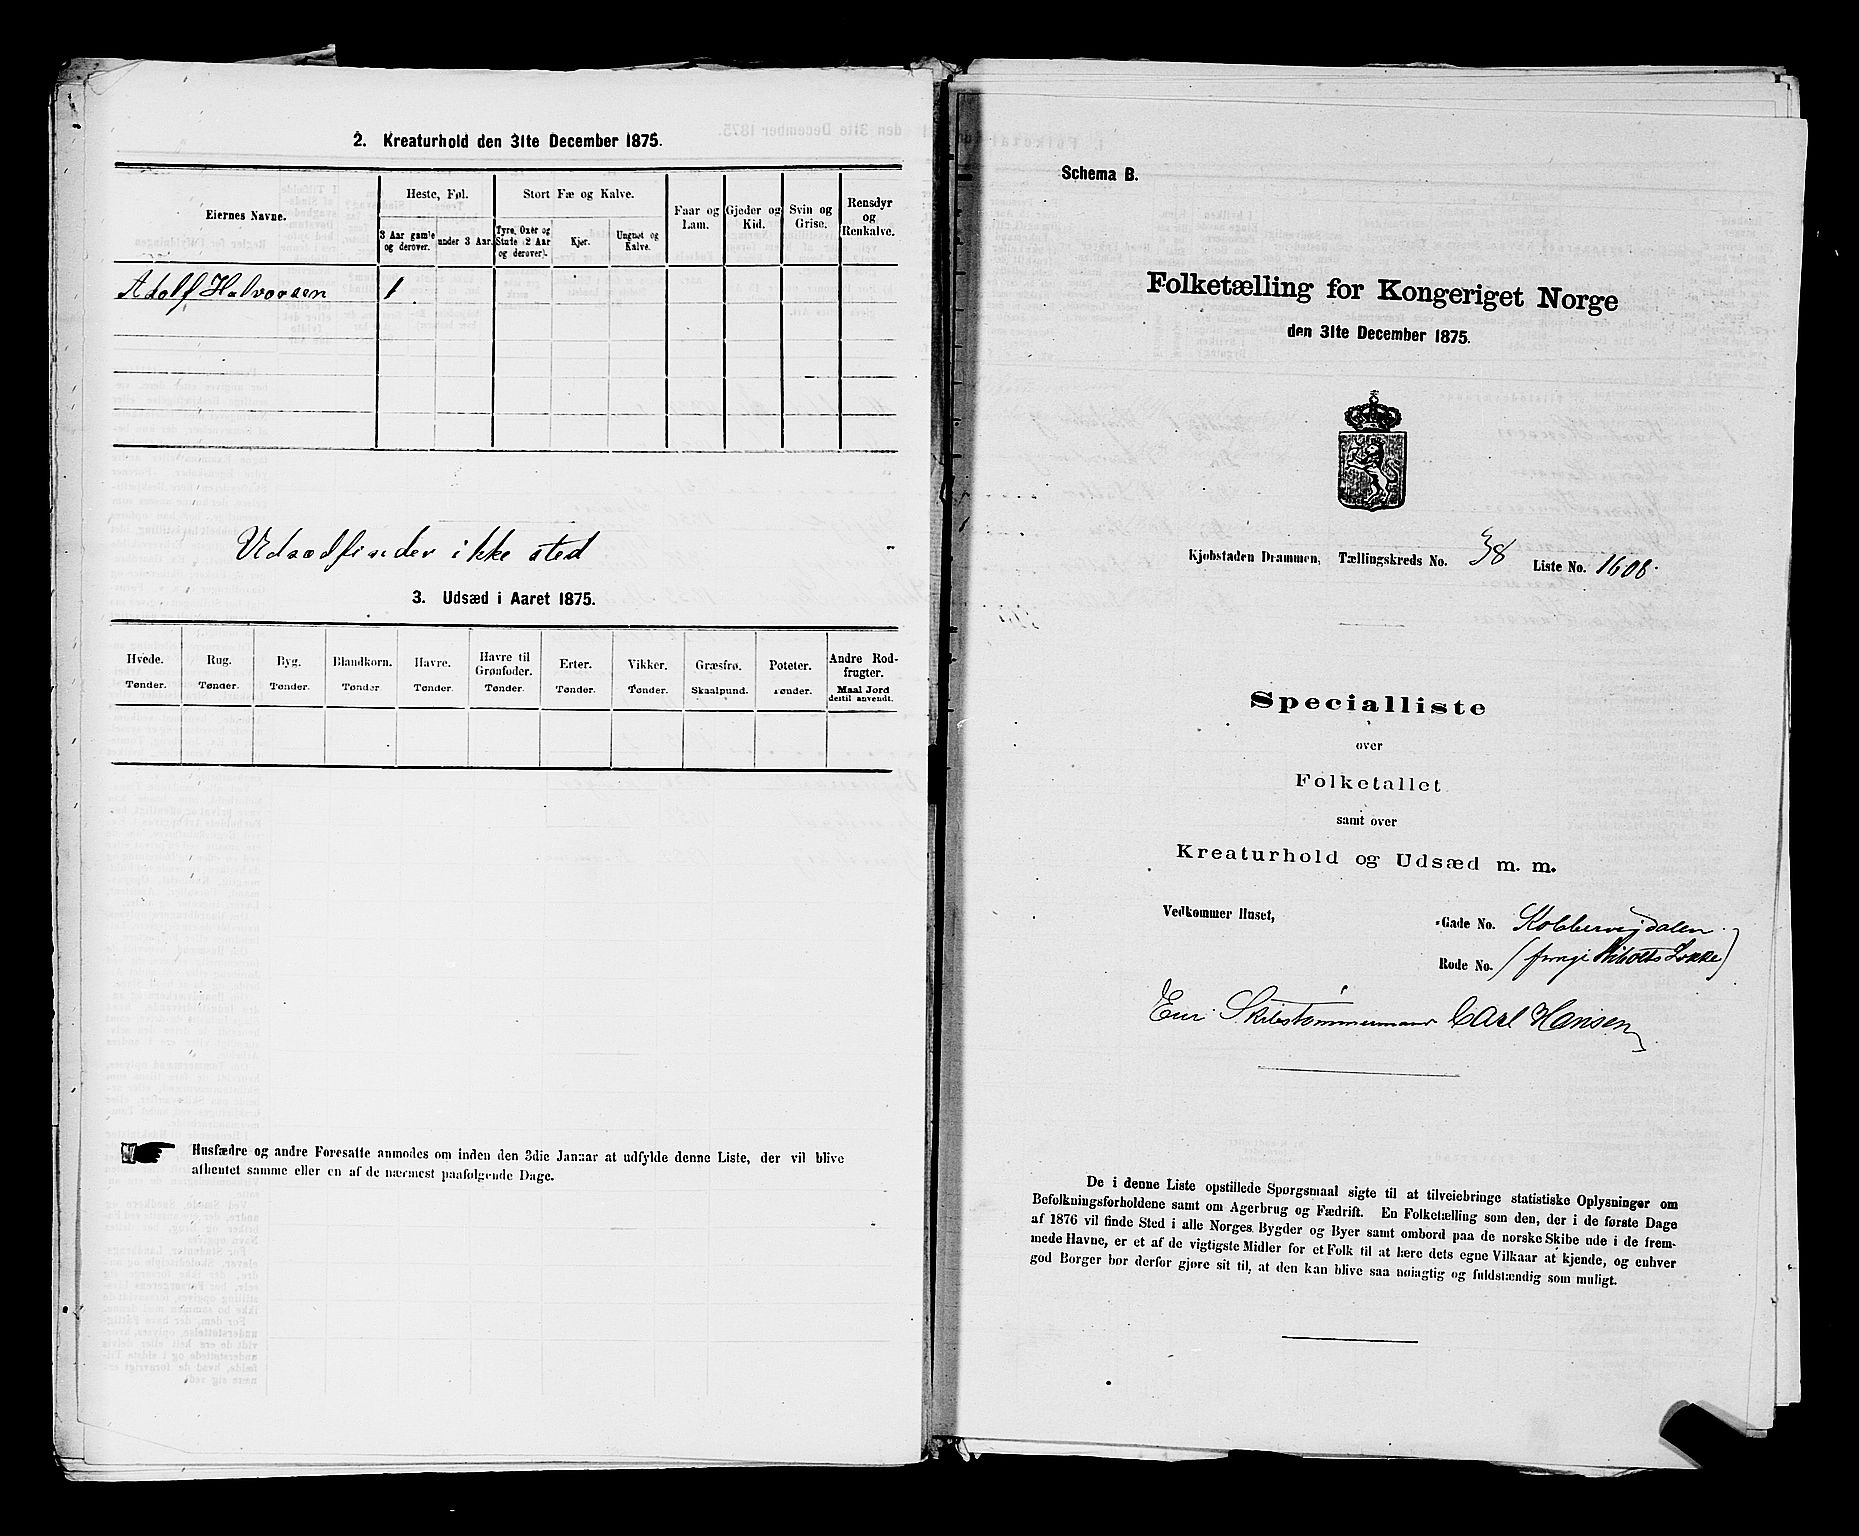 2. Kreaturhold den 31te December 1875.
Eiernes Navne.
Heste, Føl.
3 Aar gamle og derover.
under 3 Aar.
Stort Fæ og Kalve.
Tyre, Oxer og Stude (2 Aar og derover).
Kjør.
Ungnøt og Kalve.
Faar og Lam.
Gjeder og Kid.
Svin og Grise.
Rensdyr og Renkalve.
Adolf Halvorsen 1
Udsæd finder ikke sted
3. Udsæd i Aaret 1875.
Hvede. Tønder.
Rug. Tønder.
Byg. Tønder.
Blandkorn. Tønder
Havre. Tønder.
Havre til Grønfoder. Tønder.
Erter. Tønder.
Vikker. Tønder.
Græsfrø. Skaalpund.
Poteter. Tønder.
Andre Rodfrugter. Maal Jord dertil anvendt.
Husfædre og andre Foresatte anmodes om inden den 3die Januar at udfylde denne Liste, der vil blive
afhentet samme eller en af de nærmest paafølgende Dage.
Schema B.
Folketælling for Kongeriget Norge
den 31te December 1875.
Kjøbstaden Drammen, Tællingskreds No. 38 Liste No. 1608.
Specialliste
over
Folketallet
samt over
Kreaturhold og Udsæd m. m.
Vedkommer Huset, -Gade No. Kobbervigdalen
Rode No.
Eier Skibstømmermand Carl Hansen
De i denne Liste opstillede Spørgsmaal sigte til at tilveiebringe statistiske Oplysninger om
Befolkningsforholdene samt om Agerbrug og Fædrift. En Folketælling som den, der i de første Dage
af 1876 vil finde Sted i alle Norges Bygder og Byer samt ombord paa de norske Skibe ude i de frem-
mede Havne, er et af de vigtigste Midler for et Folk til at lære dets egne Vilkaar at kjende, og enhver
god Borger bør derfor gjøre sit til, at den kan blive saa nøiagtig og fuldstændig som muligt.